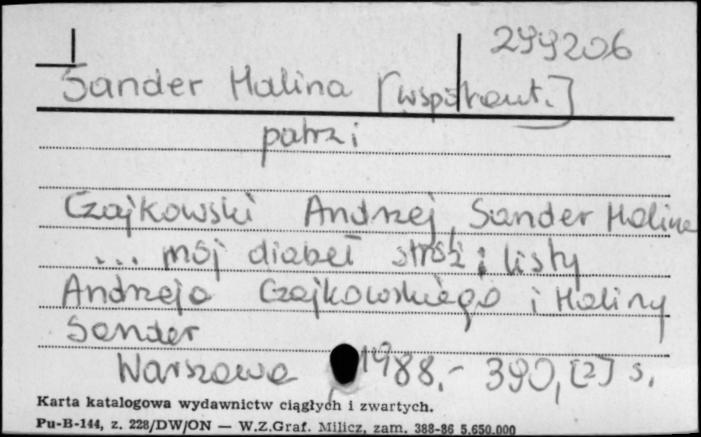 299206
Sander Halina [współaut.]
patrz:
Czajkowski Andrzej, Sander Halina
... mój diabeł stróż : listy
Andrzeja Czajkowskiego i Haliny
Sander
Warszawa 1988.- 390, [2] s.
Karta katalogowa wydawnictw ciągłych i zwartych.
Pu-B-144, z. 228/DW/ON — W.Z.Graf. Milicz, zam. 388-86 5.650.000